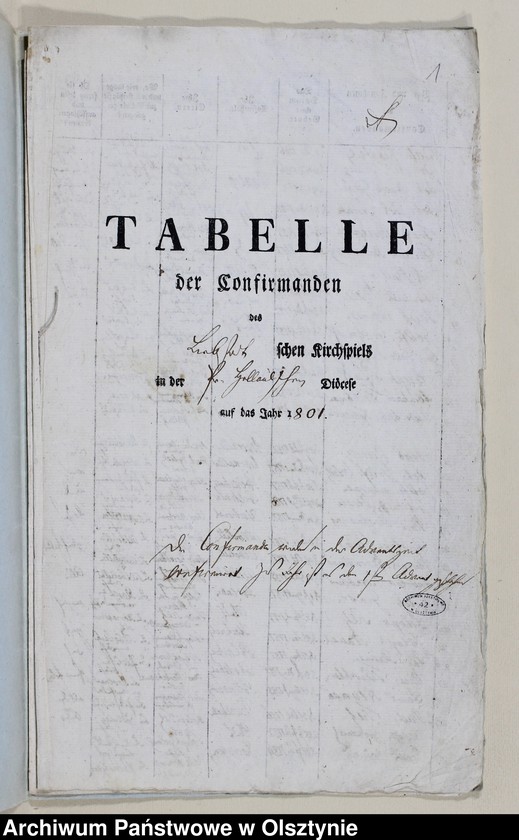 1
TABELLE
der Confirmanden
des
Liebstadt schen Kirchspiels
in der Pr. Hollandschen Diöcese
auf das Jahr 1801.
Die Confirmanden werden in der Adventszeit
confirmirt. ist es den 1sten Advent geschehen
42
Archiwum Państwowe w Olsztynie